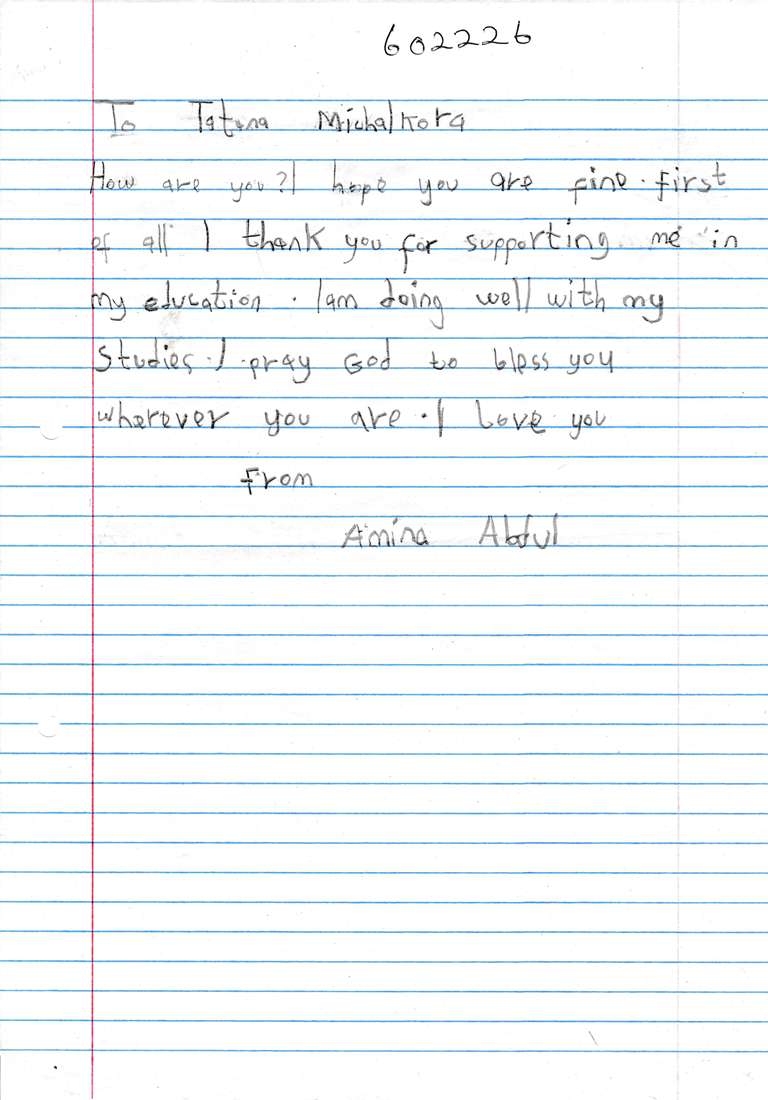 602226
To Tatyna Michalkora
How are you? I hope you are fine. first
of all I thank you for supporting me in
my education. I am doing well with my
Studies. I pray God to bless you
wherever you are. I Love you
From
Amina Abdul